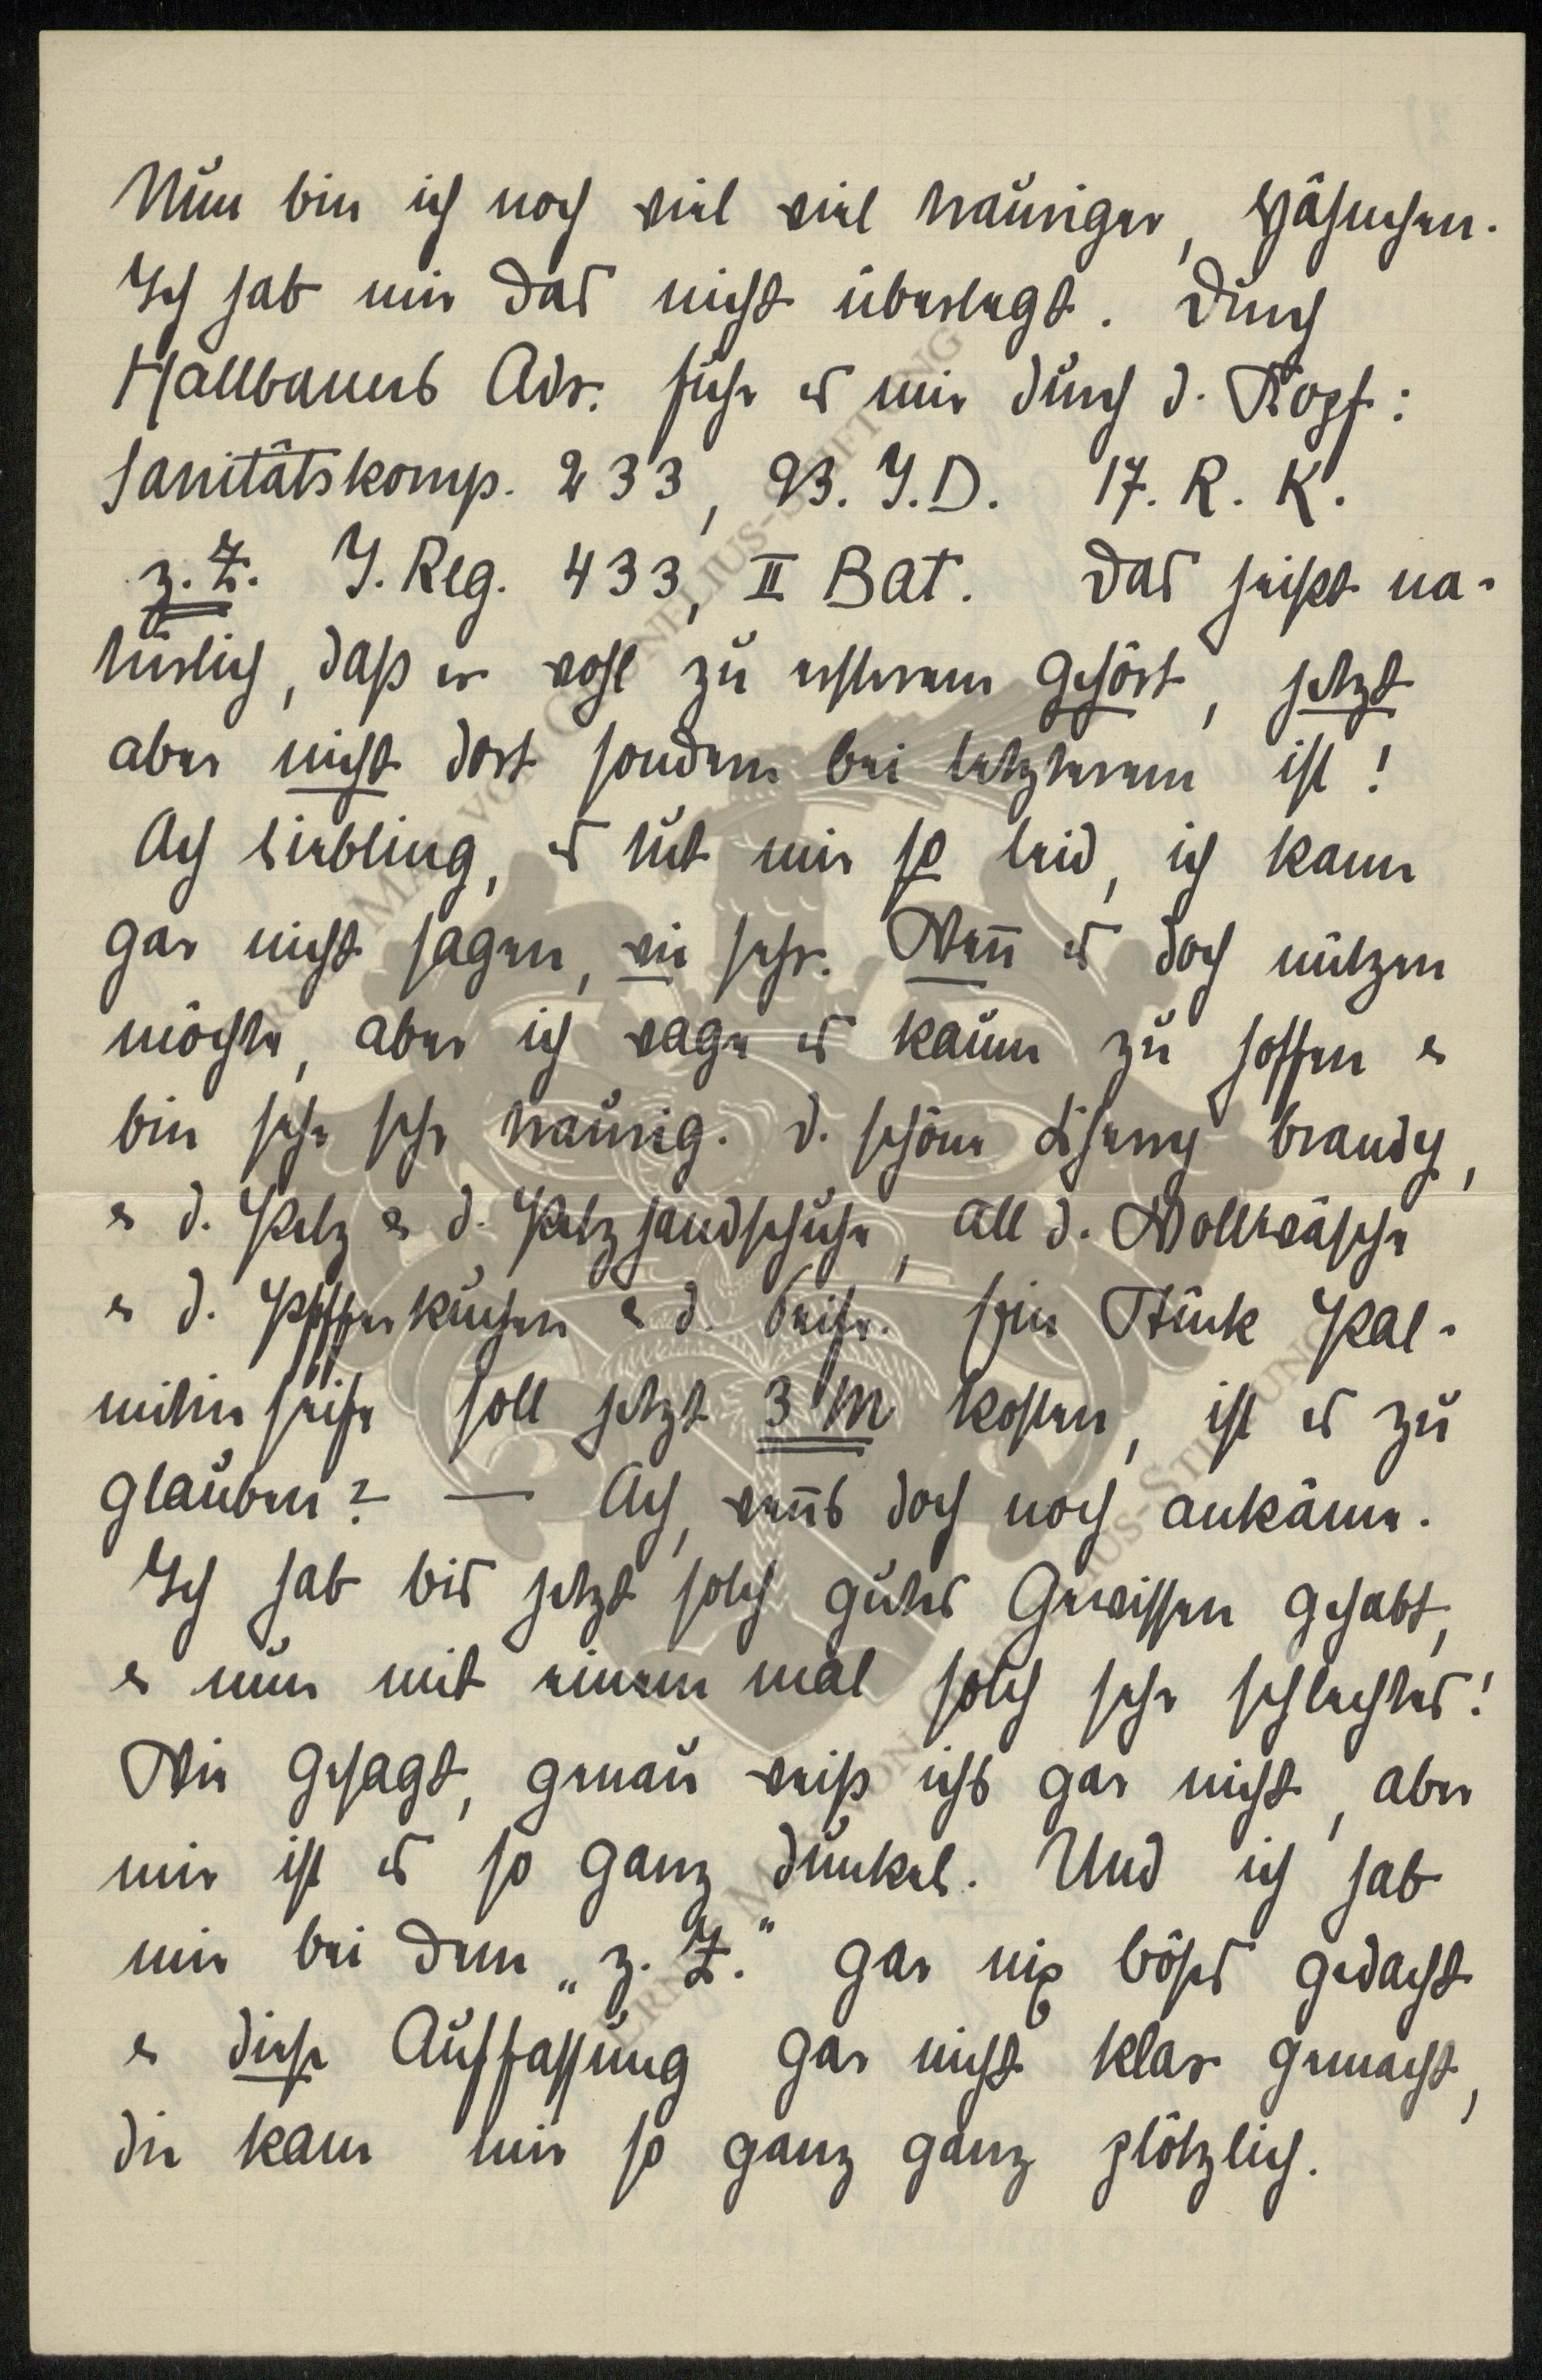 Nun bin ich noch viel viel trauriger, Hähnchen.
Ich hab mir das nicht überlegt. Durch
Hallbauers Adr. fuhr es mir durch d. Kopf:
Sanitätskomp. 233, 93. I.D. 17. R. K.
z. Z. I. Reg. 433, II Bat. Das heißt na-
türlich, daß er wohl zu ersterem gehört, jetzt
aber nicht dort sondern bei letzterem ist!
Ach Liebling, es tut mir so leid, ich kann
gar nicht sagen, wie sehr. Wenn̄ es doch nützen
möchte, aber ich wage es kaum zu hoffen &
bin sehr sehr traurig. D. schöne Cherry brandy,
& d. Pelz & d. Pelzhandschuhe, all d. Wollwäsche
& d. Pfefferkuchen & d. Seife. Ein Stück Pal-
mitinseife soll jetzt 3 M kosten, ist es zu
glauben? — Ach, wen̄s doch noch ankäme.
Ich hab bis jetzt solch gutes Gewissen gehabt,
& nun mit einem mal solch sehr schlechtes!
Wie gesagt, genau weiß ichs gar nicht, aber
mir ist es so ganz dunkel. Und ich hab
mir bei dem „z. Z.“ gar nix böses gedacht
& diese Auffassung gar nicht klar gemacht,
die kam mir so ganz ganz plötzlich.